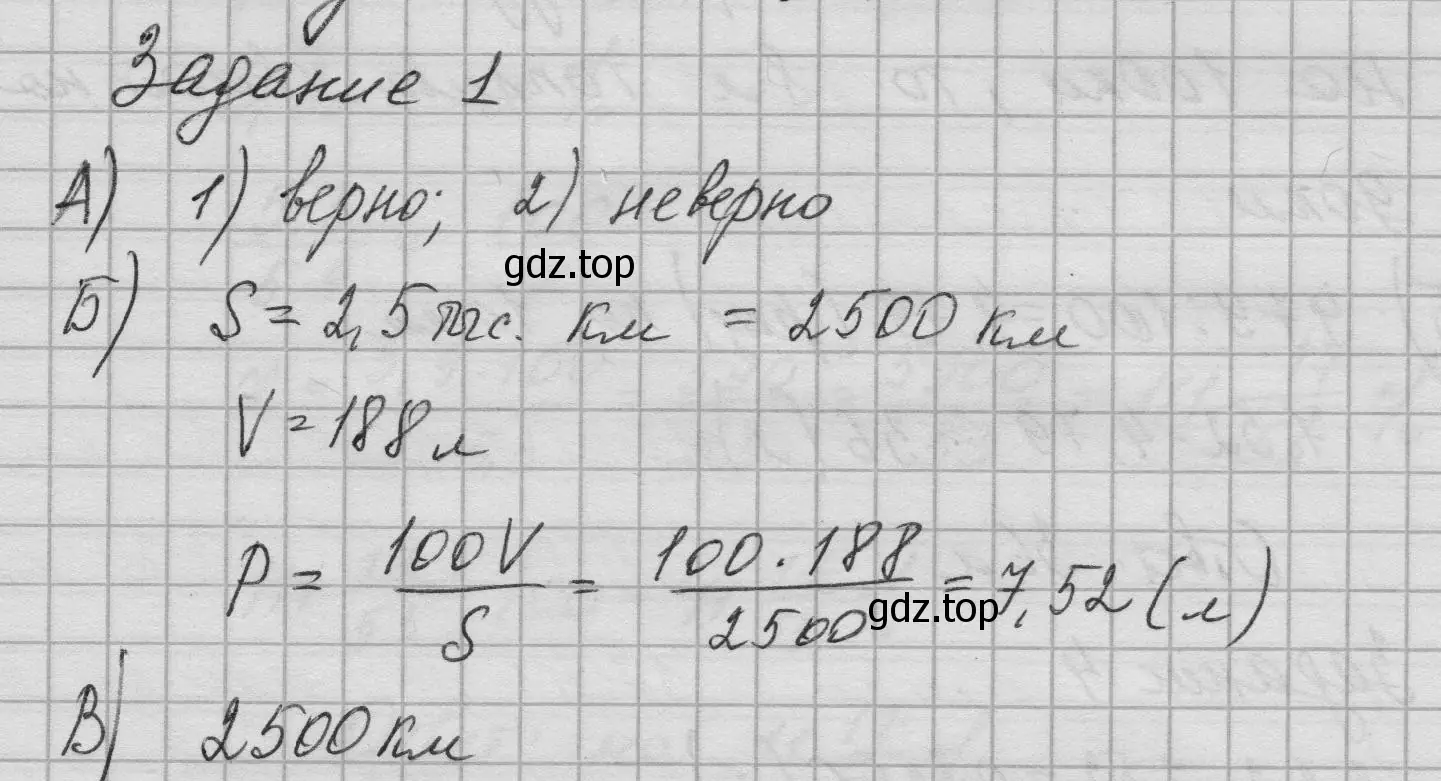 Задание 1
А) 1) верно; 2) неверно
gdz.top
Б) S = 2,5 тыс. км = 2500 км
V = 188 л
P = 100V / S = 100 · 188 / 2500 = 7,52 (л)
gdz.top
В) 2500 км